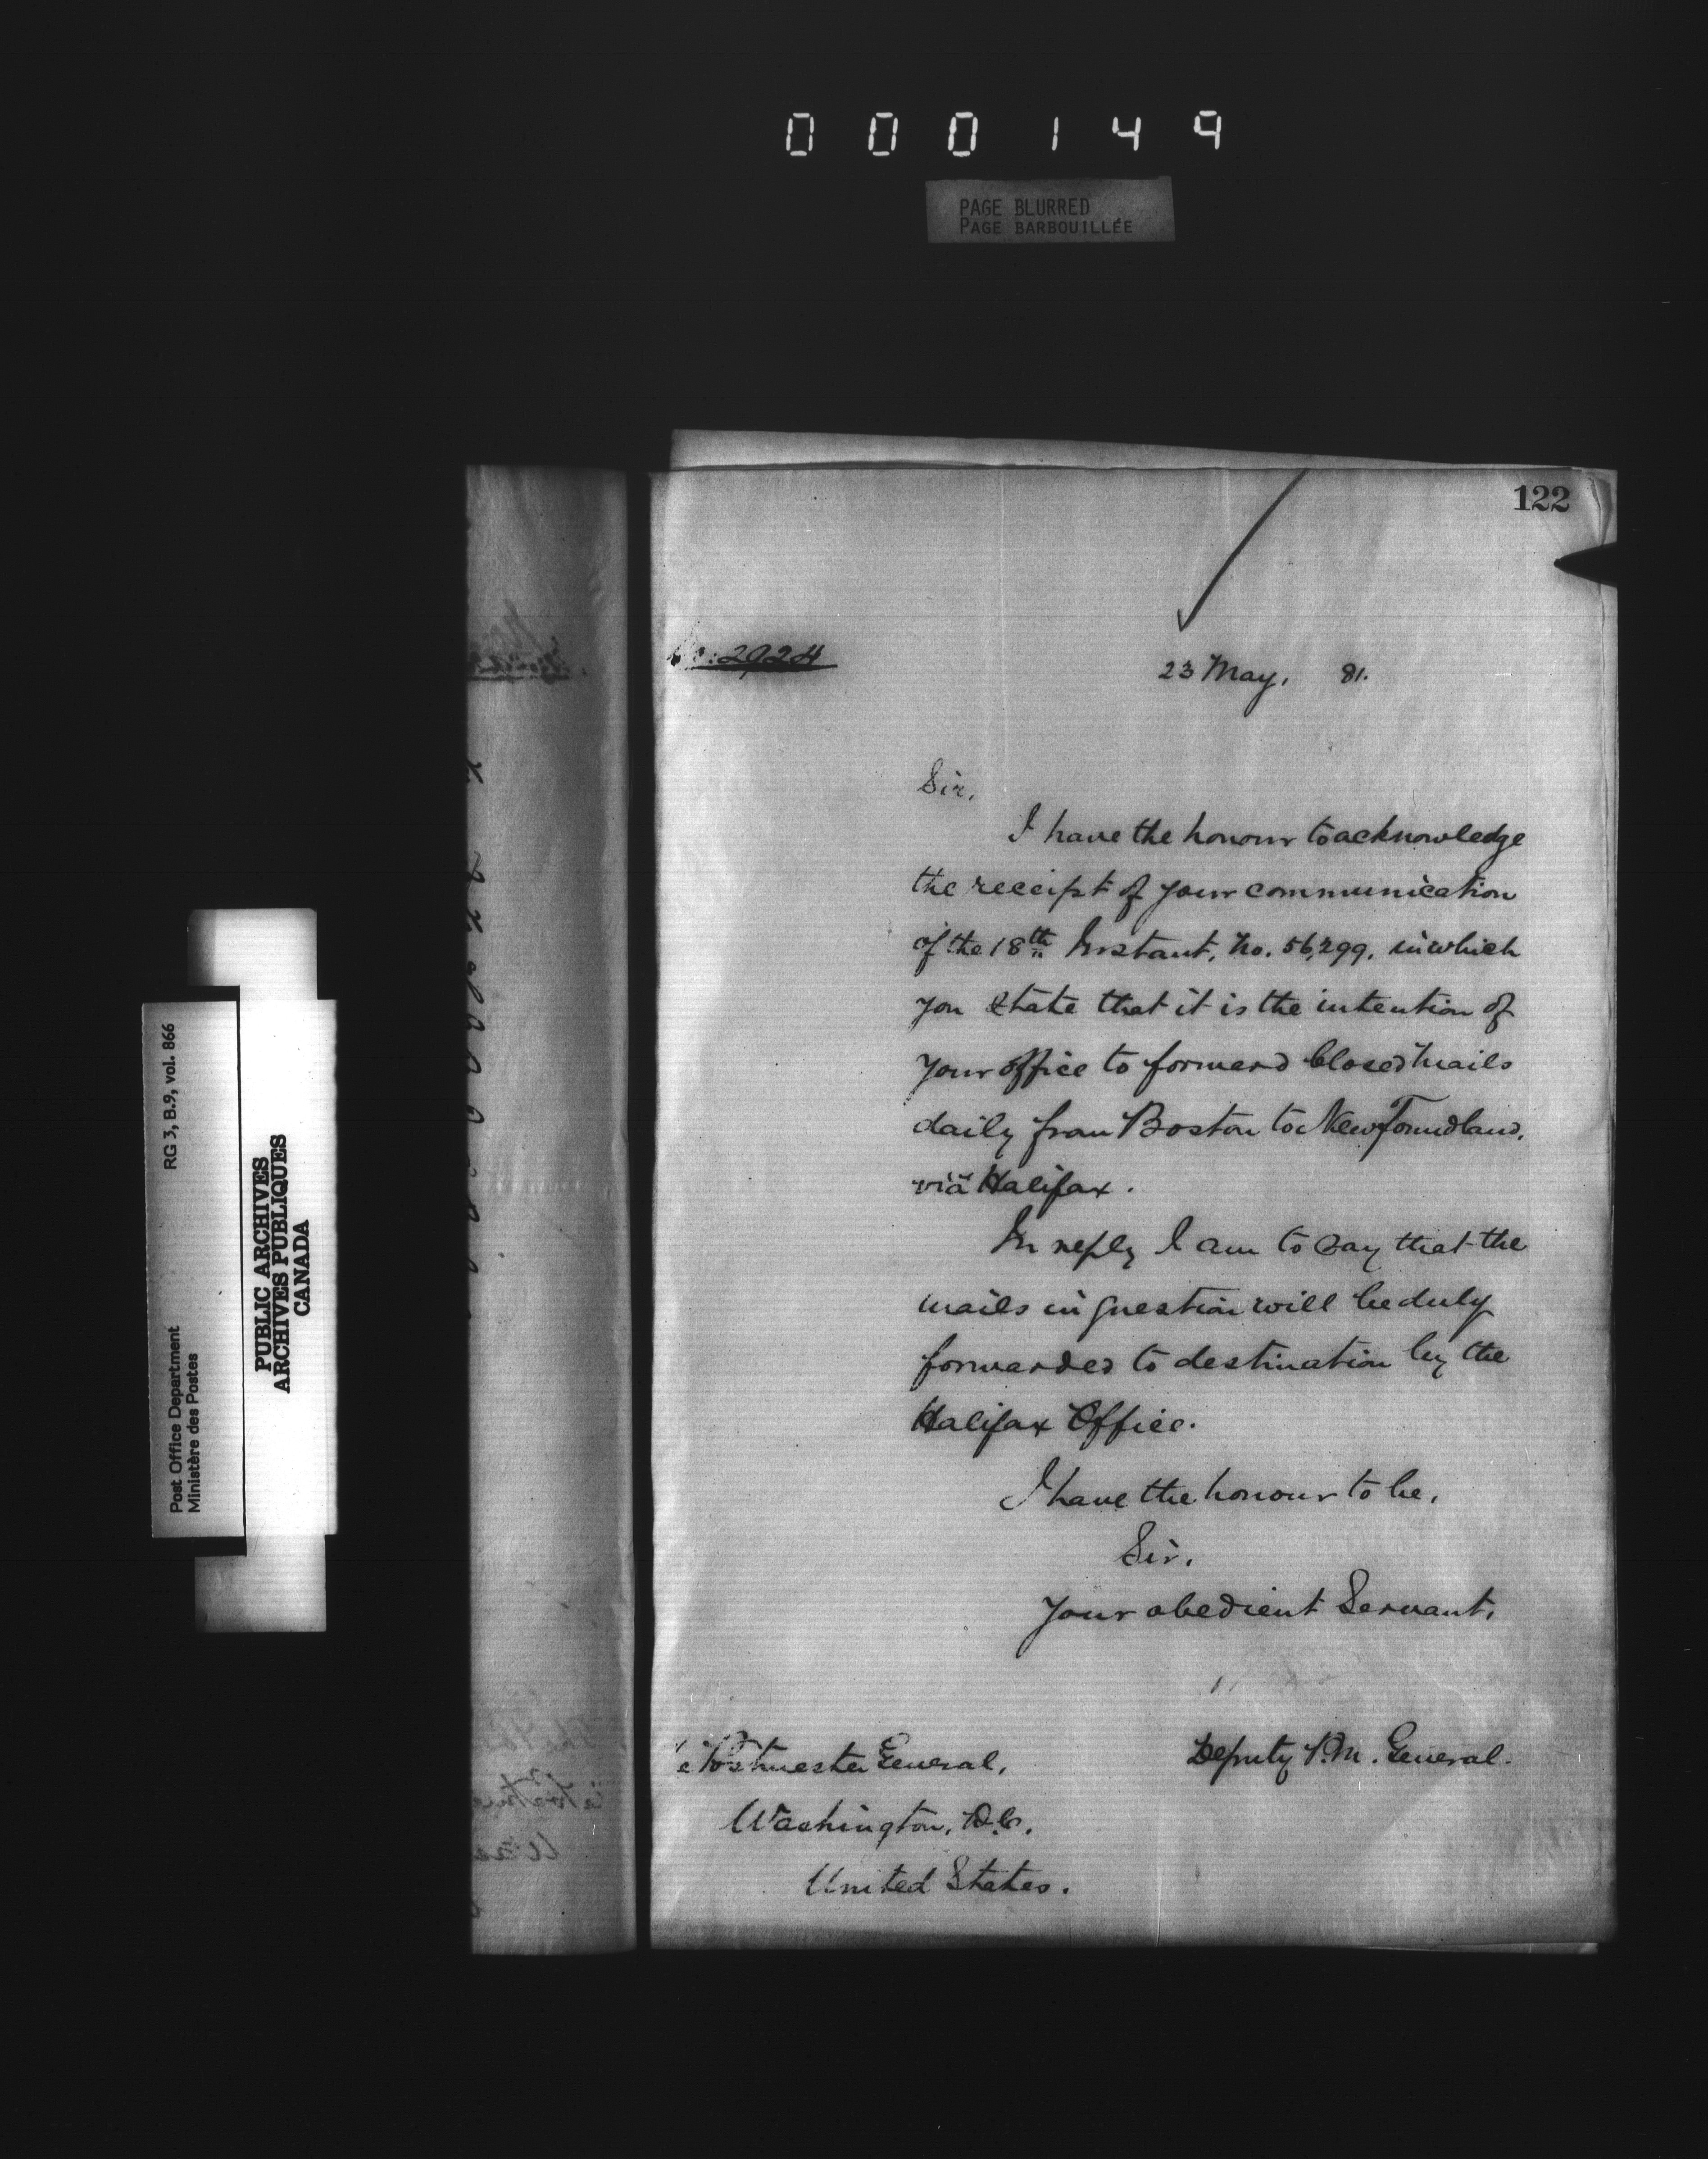 000149
PAGE BLURRED
PAGE BARBOUILLÉE
122
No: 2924
23 May, 81.
Sir,
I have the honour to acknowledge
the receipt of your communication
of the 18th Instant, No. 56,299, in which
you state that it is the intention of
your office to forward Closed Mails
daily from Boston to Newfoundland,
viâ Halifax.
In reply I am to say that the
mails in question will be duly
forwarded to destination by the
Halifax Office.
I have the honour to be,
Sir,
Your obedient Servant,
Deputy P.M. General.
Postmaster General,
Washington, D.C.,
United States.
RG 3, B.9, vol. 866
Post Office Department
Ministère des Postes
PUBLIC ARCHIVES
ARCHIVES PUBLIQUES
CANADA